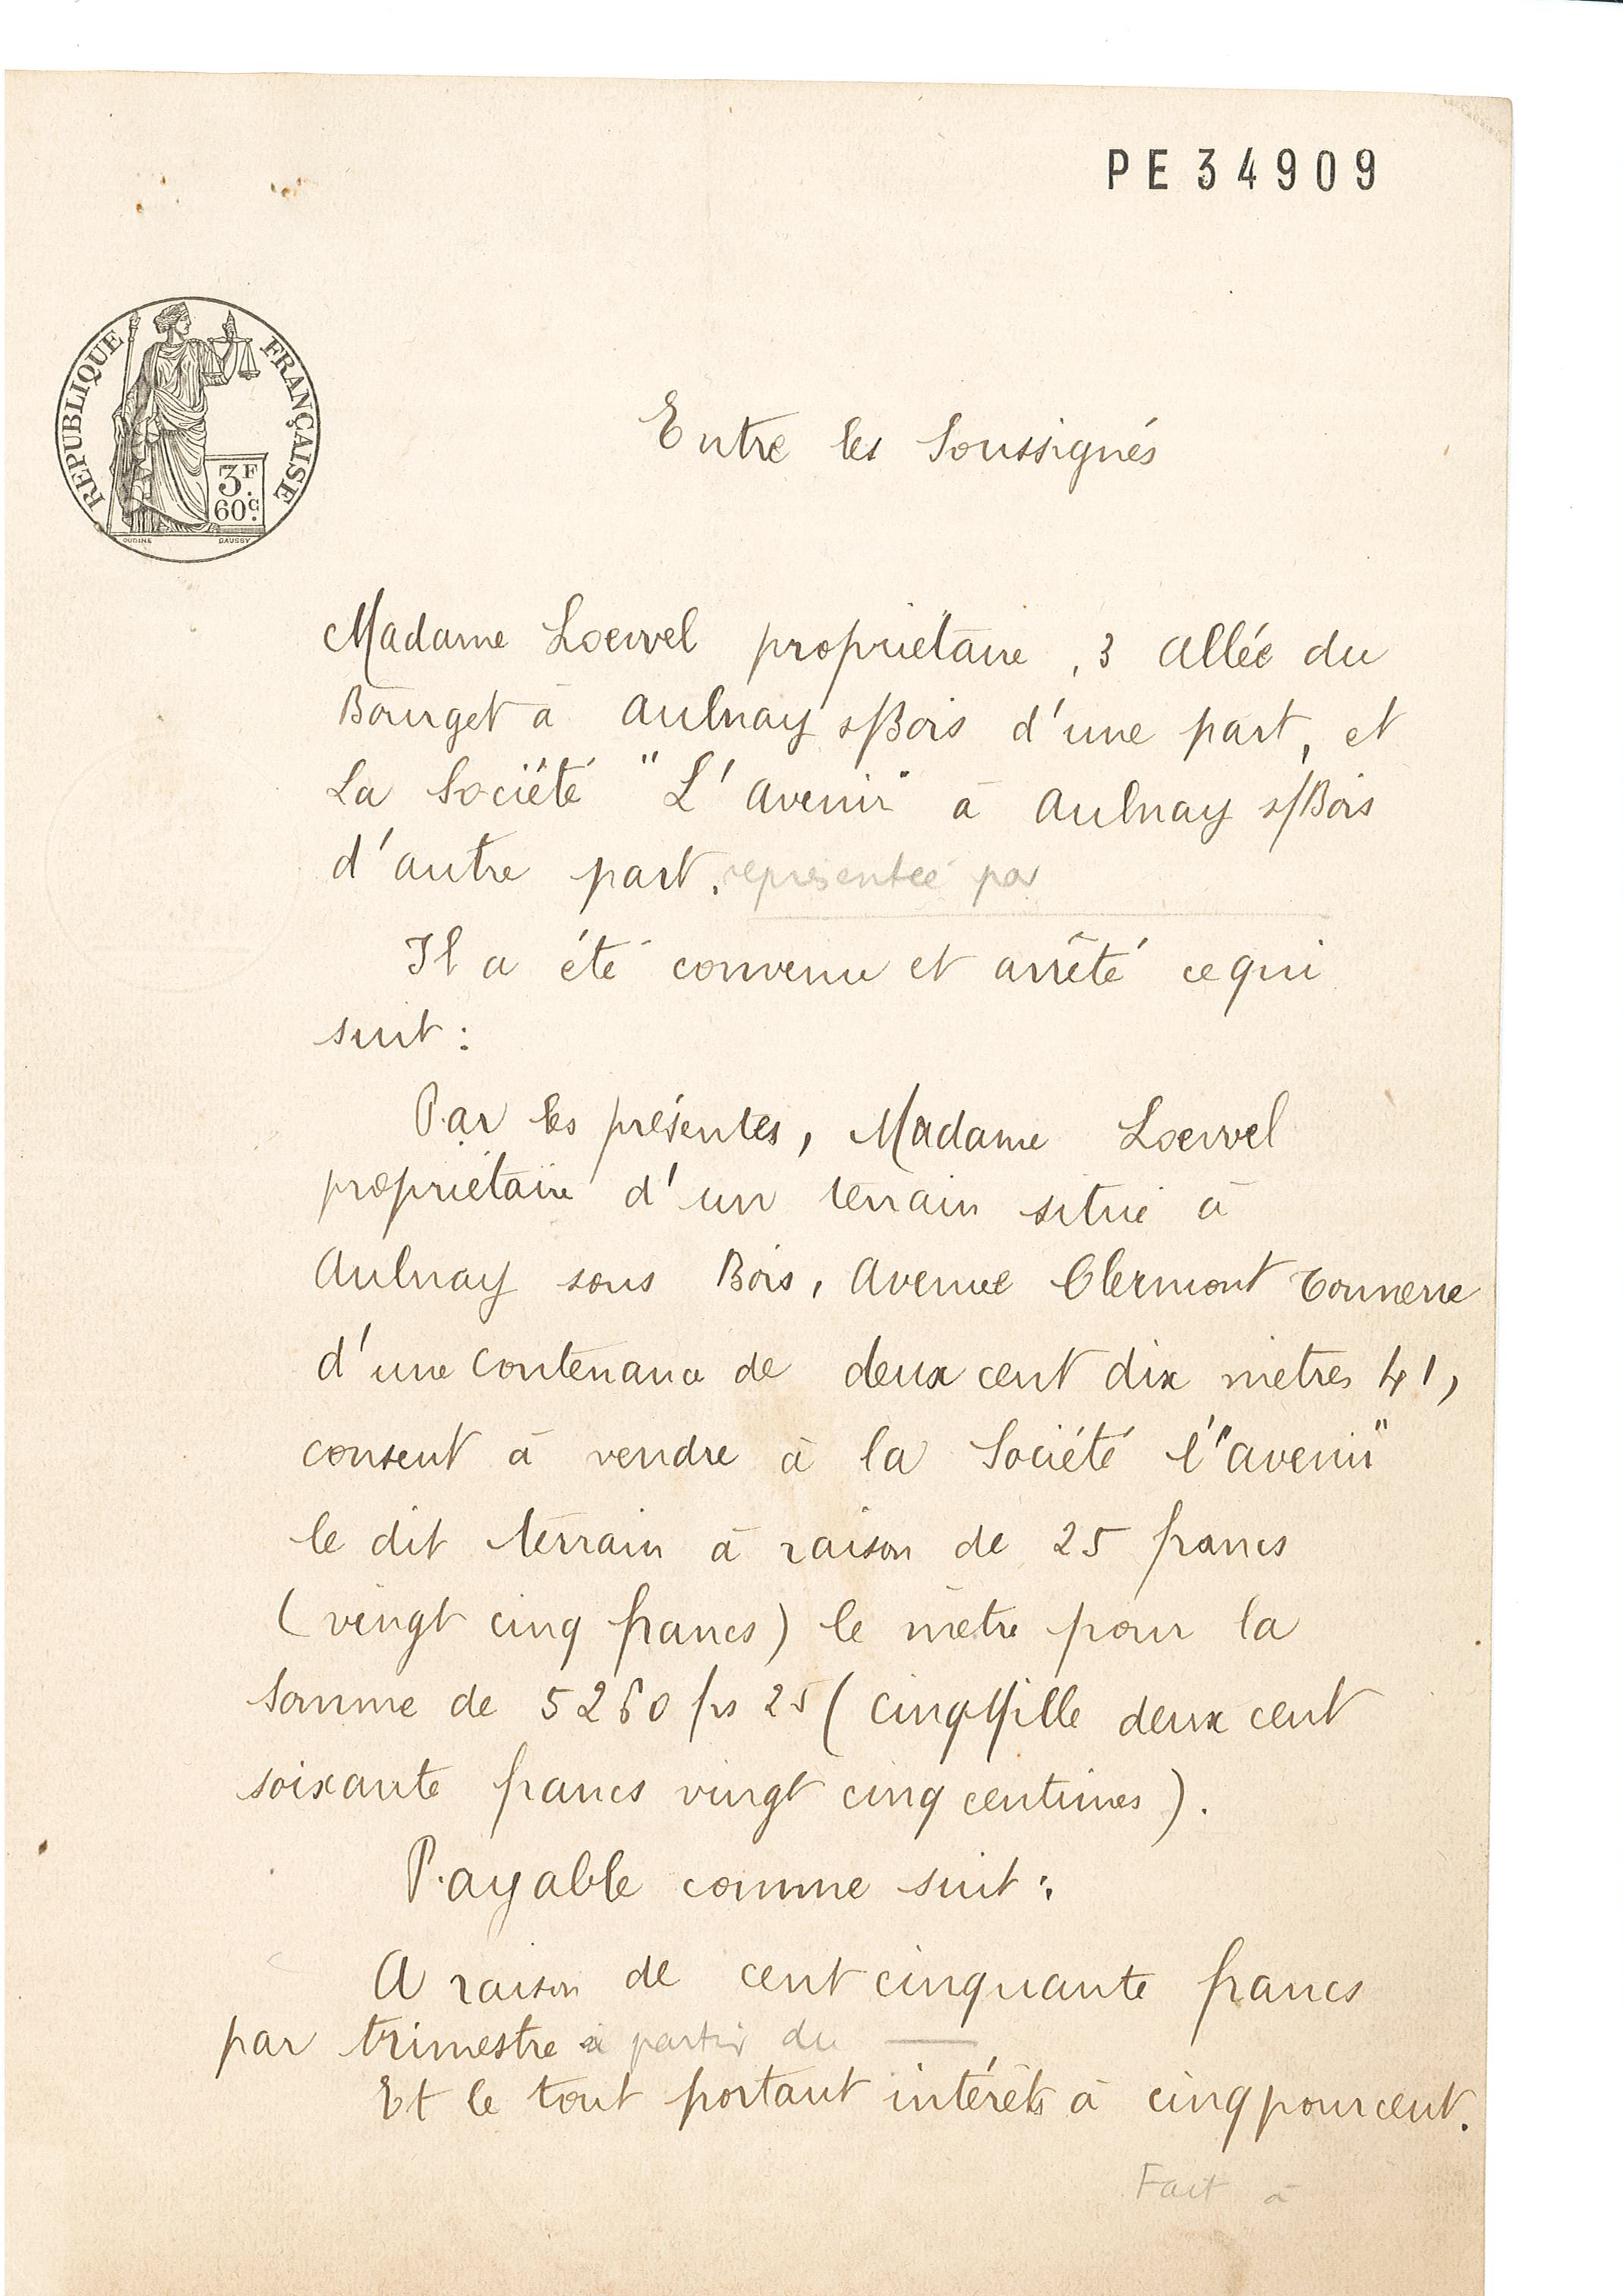 PE34909
REPUBLIQUE FRANÇAISE
3F.
60c.
OUDINE DAUSSY
Entre les Soussignés
Madame Loewel propriétaire, 3 allée du
Bourget à Aulnay s/Bois d'une part, et
La Société "L'Avenir" à Aulnay s/Bois
d'autre part. représentée par
Il a été convenu et arrêté ce qui
suit :
Par les présentes, Madame Loewel
propriétaire d'un terrain situé à
Aulnay sous Bois, Avenue Clermont Tonnerre
d'une contenance de deux cent dix mètres 41,
consent à vendre à la Société l'"avenir"
le dit terrain à raison de 25 francs
(vingt cinq francs) le mètre pour la
somme de 5260 frs 25 (cinq Mille deux cent
soixante francs vingt cinq centimes).
Payable comme suit :
A raison de cent cinquante francs
par trimestre à partir du —
Et le tout portant intérêts à cinq pour cent.
Fait à